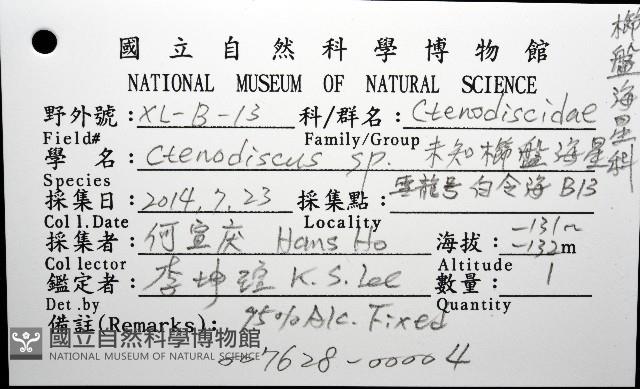 國立自然科學博物館
NATIONAL MUSEUM OF NATURAL SCIENCE
野外號：XL-B-13 科/群名：Ctenodiscidae
Field# Family/Group
學名：Ctenodiscus sp. 未知櫛盤海星
Species
採集日：2014.7.23 採集點：雪龍号 白令海 B13
Coll.Date Locality
採集者：何宣庆 Hans Ho 海拔：-131~-132m
Collector Altitude
鑑定者：李坤瑄 K.S.Lee 數量：1
Det.by Quantity
備註(Remarks)：95% Alc. Fixed
007628-00004
櫛盤海星科
國立自然科學博物館
NATIONAL MUSEUM OF NATURAL SCIENCE